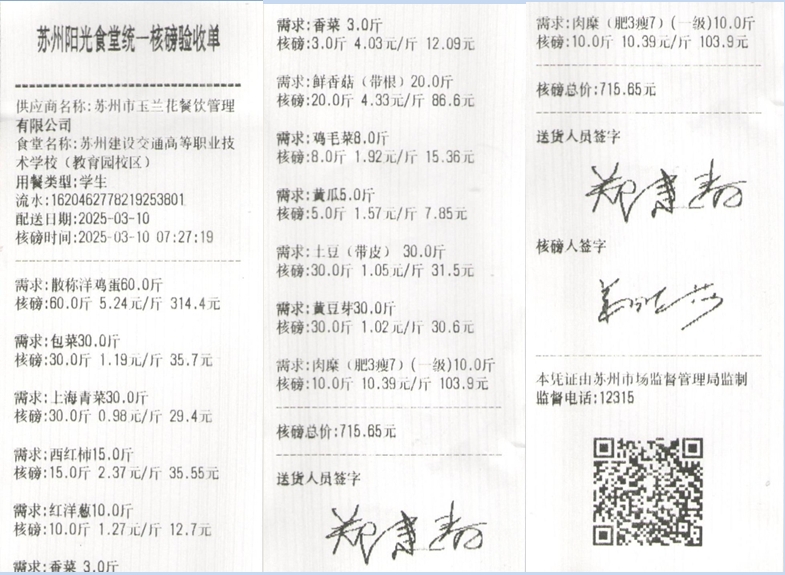 苏州阳光食堂统一核磅验收单
供应商名称:苏州市玉兰花餐饮管理
有限公司
食堂名称:苏州建设交通高等职业技
术学校（教育园校区）
用餐类型:学生
流水:1620462778219253801
配送日期:2025-03-10
核磅时间:2025-03-10 07:27:19
需求:散称洋鸡蛋60.0斤
核磅:60.0斤 5.24元/斤 314.4元
需求:包菜30.0斤
核磅:30.0斤 1.19元/斤 35.7元
需求:上海青菜30.0斤
核磅:30.0斤 0.98元/斤 29.4元
需求:西红柿15.0斤
核磅:15.0斤 2.37元/斤 35.55元
需求:红洋葱10.0斤
核磅:10.0斤 1.27元/斤 12.7元
需求:香菜 3.0斤
需求:香菜 3.0斤
核磅:3.0斤 4.03元/斤 12.09元
需求:鲜香菇（带根）20.0斤
核磅:20.0斤 4.33元/斤 86.6元
需求:鸡毛菜8.0斤
核磅:8.0斤 1.92元/斤 15.36元
需求:黄瓜5.0斤
核磅:5.0斤 1.57元/斤 7.85元
需求:土豆（带皮） 30.0斤
核磅:30.0斤 1.05元/斤 31.5元
需求:黄豆芽30.0斤
核磅:30.0斤 1.02元/斤 30.6元
需求:肉糜（肥3瘦7）(一级)10.0斤
核磅:10.0斤 10.39元/斤 103.9元
核磅总价:715.65元
送货人员签字
需求:肉糜（肥3瘦7）(一级)10.0斤
核磅:10.0斤 10.39元/斤 103.9元
核磅总价:715.65元
送货人员签字
核磅人签字
本凭证由苏州市场监督管理局监制
监督电话:12315